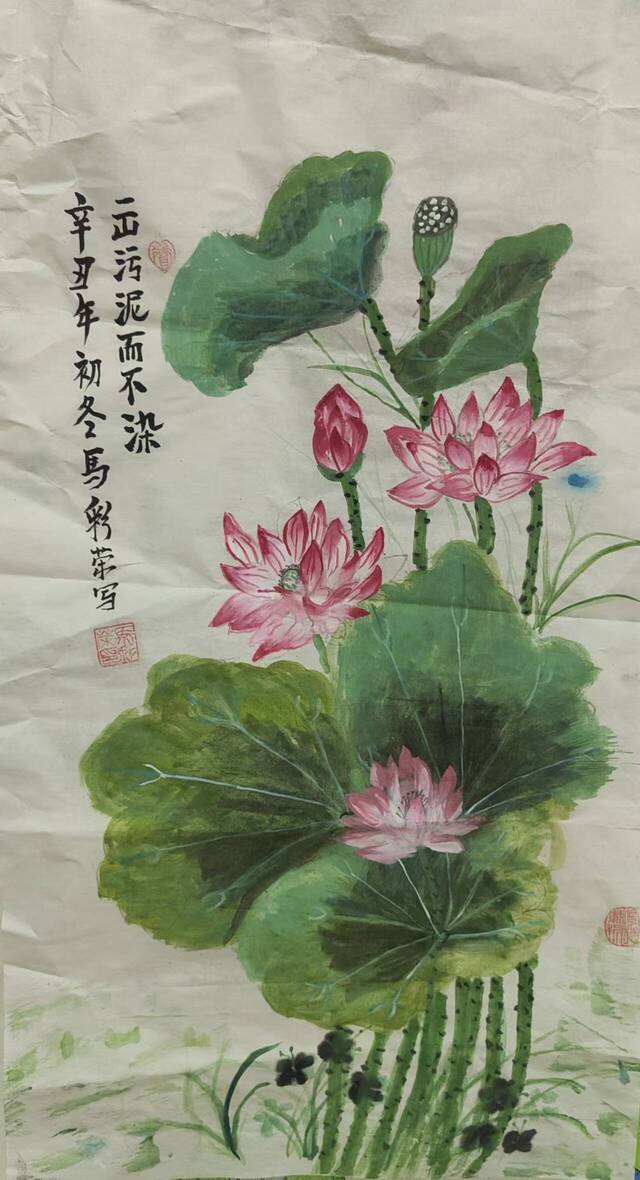 出污泥而不染
辛丑年初冬馬彩荣写